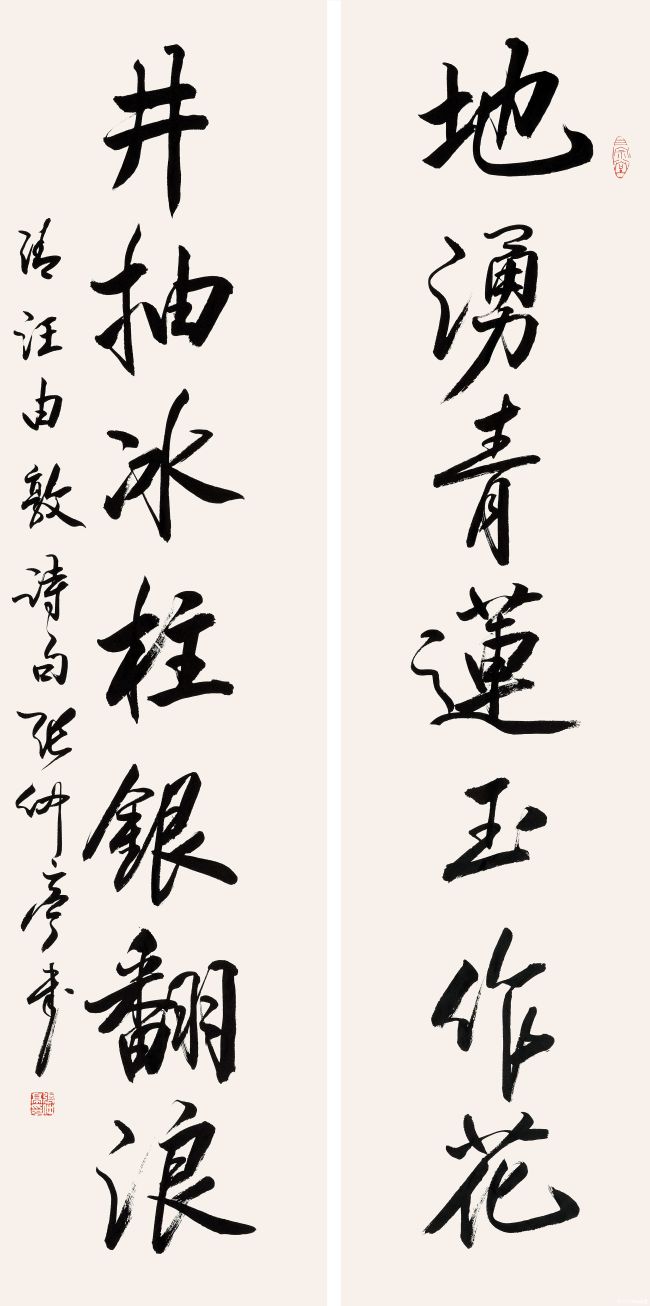 地湧青蓮玉作花
井抽冰柱銀翻浪
清汪由敦詩句張仲亭書